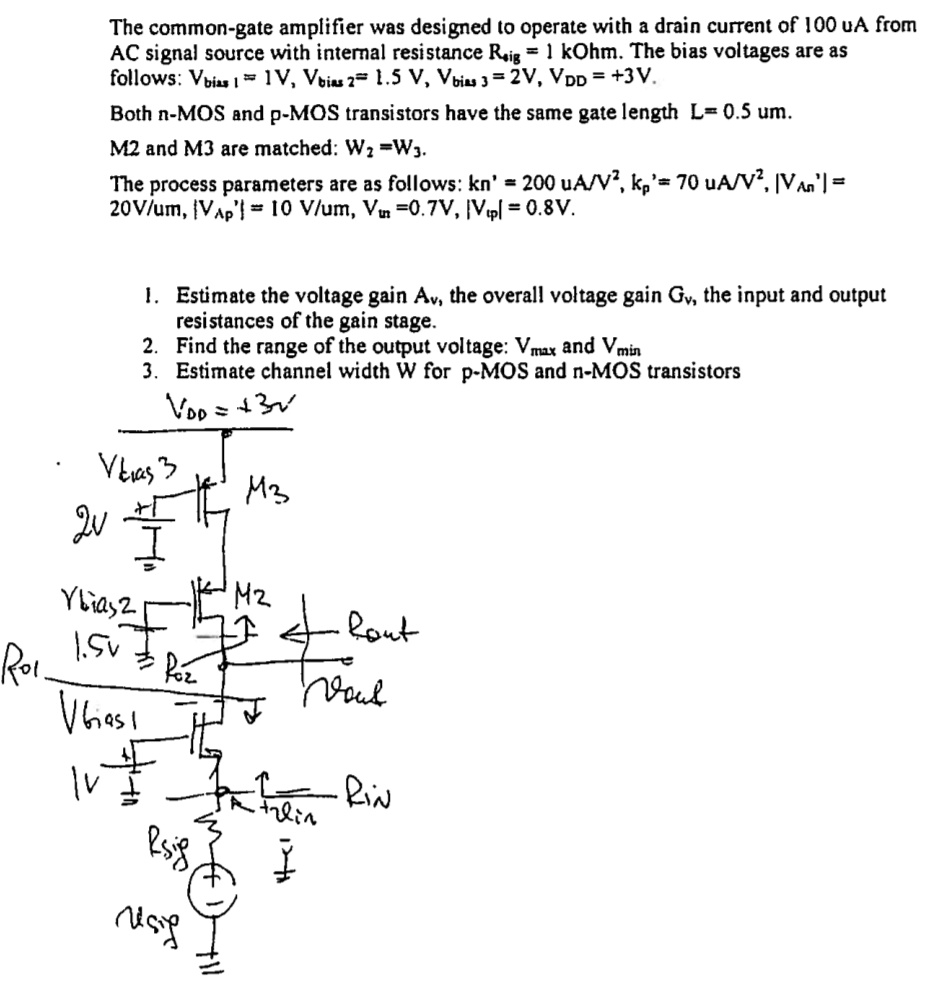 The common-gate amplifier was designed to operate with a drain current of 100 uA from
AC signal source with internal resistance Rsig = 1 kOhm. The bias voltages are as
follows: Vbias 1 = 1V, Vbias 2= 1.5 V, Vbias 3 = 2V, VDD = +3V.
Both n-MOS and p-MOS transistors have the same gate length L= 0.5 um.
M2 and M3 are matched: W2 =W3.
The process parameters are as follows: kn' = 200 uA/V², kp'= 70 uA/V², |VAn'| =
20V/um, |VAp'| = 10 V/um, Vtn =0.7V, |Vtp| = 0.8V.
1. Estimate the voltage gain Av, the overall voltage gain Gv, the input and output
resistances of the gain stage.
2. Find the range of the output voltage: Vmax and Vmin
3. Estimate channel width W for p-MOS and n-MOS transistors
VDD = +3V
Vbias 3
M3
2V
+
Vbias2
M2
1.5V
Rout
Ro2
Ro1
Vout
Vbias1
+
1V
Rin
+vin
-
Rsig
+
-
vsig